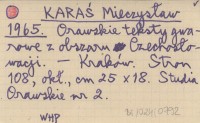 KARAŚ Mieczysław
1965. Orawskie teksty gwa-
rowe z obszaru Czechosło-
wacji. — Kraków. Stron
108, okł., cm 25 x 18. Studia
Orawskie nr 2.
WHP